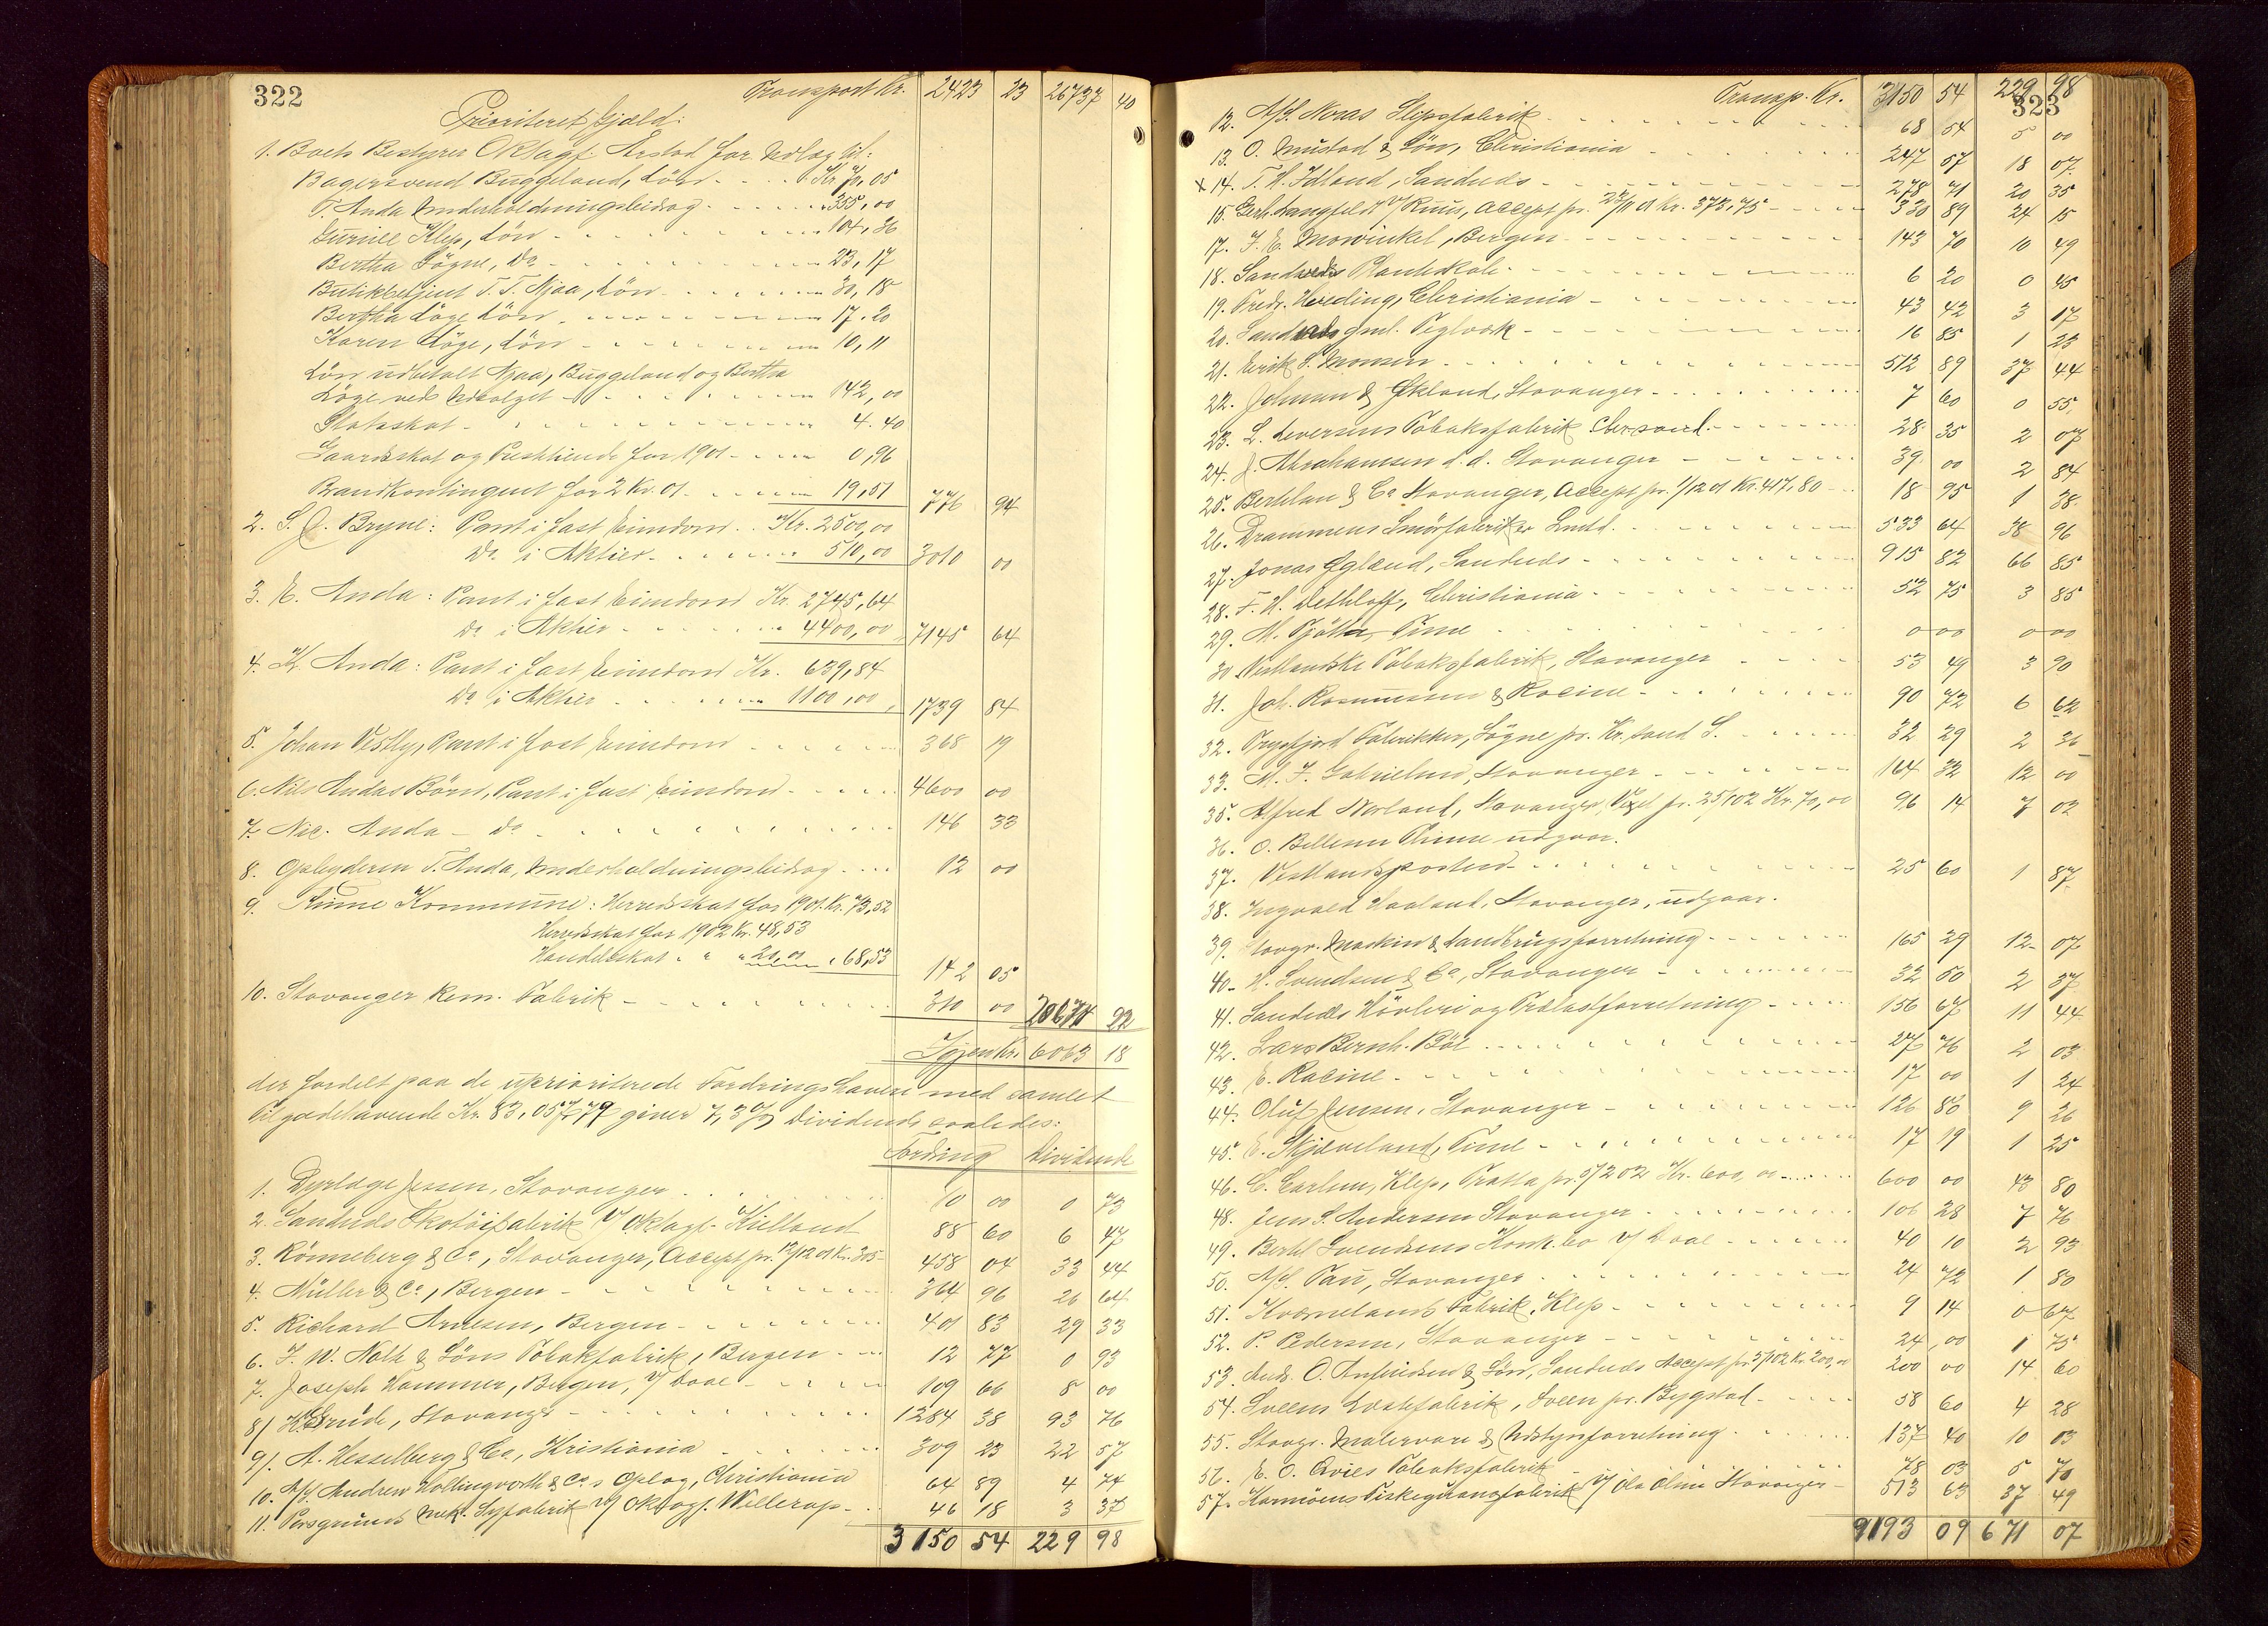 322
Transport Kr. 2423 23 26737 40
Prioriteret Gjæld:
1. Boets Bestyrer O.R.Sagf. Aarstad for Udlæg til:
Bagersvend Buggeland, Lön Kr. 70,05
T. Anda Underholdningsbidrag 355,00
Gurine Klep, Lön 104,36
Bertha Sögne, Do 23,17
Butikbetjent T. T. Njaa, Lön 30,18
Bertha Löge Lön 17.20
Karen Löge, Lön 10,11
Lön udbetalt Njaa, Buggeland og Bertha
Löge ved Udsalget 142,00
Statsskat 4.40
Gaardsskat og Prestetiende for 1901 0,96
Brandkontingent for 2 Kv. 01 19,51 776 94
2. S. O. Bryne: Pant i fast Eiendom Kr. 2500,00
Do i Aktier 510,00 3010 00
3. E. Anda: Pant i fast Eiendom Kr. 2745,64
Do i Aktier 4400,00 7145 64
4. K. Anda: Pant i fast Eiendom Kr. 639,84
Do i Aktier 1100,00 1739 84
5. Johan Vestly, Pant i fast Eiendom 368 19
6. Nils Andas Börn, Pant i fast Eiendom 4600 00
7. Nic. Anda - Do 146 33
8. Oplagderen T. Anda, Underholdningsbidrag 12 00
9. Thime Kommune: Herredsskat for 1901. Kr. 73,52
Herredsskat for 1902 Kr. 48,53
Handelsskat " " " 20,00 " 68,53 142 05
10. Stavanger Kem. Fabrik 310 00 20674 22
Igjen Kr. 6063 18
der fordelt paa de uprioriterede Fordringshavere med samlet
Tilgodehavende Kr. 83,057,79 giver 7,3 % Dividende saaledes:
Fordring Dividende
1. Dyrlæge Jessen, Stavanger 10 00 0 73
2. Sandnæs Skotöifabrik v/ O.R.Sagf. Kielland 88 60 6 47
3. Rönneberg & Co, Stavanger, Accept pr. 12/12 01 Kr. 305 458 04 33 44
4. Müller & Co, Bergen 364 96 26 64
5. Richard Arnesen, Bergen 401 83 29 33
6. J. W. Nolte & Söns Tobakfabrik, Bergen 12 77 0 93
7. Joseph Hammer, Bergen, v/ Doae 109 66 8 00
8/ Krude, Stavanger 1284 38 93 76
9/. A. Hesselberg & Co, Kristiania 309 23 22 57
10. A/S. Andrew Hollingworth & Co.s Oplag, Christiania 64 89 4 74
11. Porsgrunds mek. Syfabrik v/ O.R.Sagf. Wellerop 46 18 3 37
3150 54 229 98
323
Transp. Kr. 3150 54 229 98
12. A/S. Noras Slipsfabrik 68 54 5 00
13. O. Mustad & Sön, Christiania 247 57 18 07
x 14. T. H. Idland, Sandnæs 278 71 20 35
15. Gerh. Langfeldt v/ Ruus, Accept pr. 23/11 01 Kr. 373,75 330 89 24 15
17. J. E. Mowinkel, Bergen 143 70 10 49
18. Sandnæs Planteskole 6 20 0 45
19. Fredr. Hereding, Christiania 43 42 3 17
20. Sandnæs gml. Teglværk 16 85 1 23
21. Erik S. Monsen 512 89 37 44
22. Johnsen & Ökland, Stavanger 7 60 0 55
23. L. Iversens Tobaksfabrik Chr.sand 28 35 2 07
24. J. Abrahamsen d. d. Stavanger 39 00 2 84
25. Bertelsen & Co Stavanger, Accept pr. 1/12 01 Kr. 417,80 18 95 1 38
26. Drammens Smörfabriker Lmtd. 533 64 38 96
27. Jonas Øgland, Sandnæs 915 82 66 85
28. F. H. Dethloff, Christiania 52 75 3 85
29. M. Tjötta, Time 0 00 0 00
30 Vestlandske Tobaksfabrik, Stavanger 53 49 3 90
31. Joh. Rasmussen & Racine 90 72 6 62
32. Trysfjord Fabrikker, Sögne pr. Kr.sand S. 32 29 2 36
33. M. J. Gabrielsen, Stavanger 164 32 12 00
35. Alfred Norland, Stavanger, Vexel pr. 25/1 02 Kr. 70,00 96 14 7 02
36. O. Bellesen Thime udgaar.
37. Vestlandsposten 25 60 1 87
38. Ingvald Haaland, Stavanger, udgaar.
39. Stavgr. Maskin & Landbrugsforretning 165 29 12 07
40. H. Svendsen & Co, Stavanger 32 50 2 37
41. Sandnæs Hövleri og Trælastforretning 156 67 11 44
42. Lars Bernh. Böe 27 76 2 03
43. E. Racine 17 00 1 24
44. Oluf Jensen, Stavanger 126 80 9 26
45. E. Skjæveland, Time 17 19 1 25
46. C. Carlsen, Klep, Tratta pr. 5/2 02 Kr. 600,00 600 00 43 80
48. Jens S. Andersen Stavanger 106 28 7 76
49. Bertel Svendsens Konk.bo v/ Doae 40 10 2 93
50. A/S. Tau, Stavanger 24 72 1 80
51. Kvernelands Fabrik, Klep 9 14 0 67
52. P. Pedersen, Stavanger 24,00 1 75
53. Ands. O. Anfindsen & Sön, Sandnæs Accept pr. 5/1 02 Kr. 200,00 200 00 14 60
54. Sveens Lvstefabrik, Sveen pr. Bygstad 58 60 4 28
55. Stavgr. Malervare & Udstyrsforretning 137 40 10 03
56. E. O. Qvies Tobaksfabrik 78 03 5 70
57. Karmöens Fiskeguanofabrik v/ Ola Olsen Stavanger 513 63 37 49
9193 09 671 07